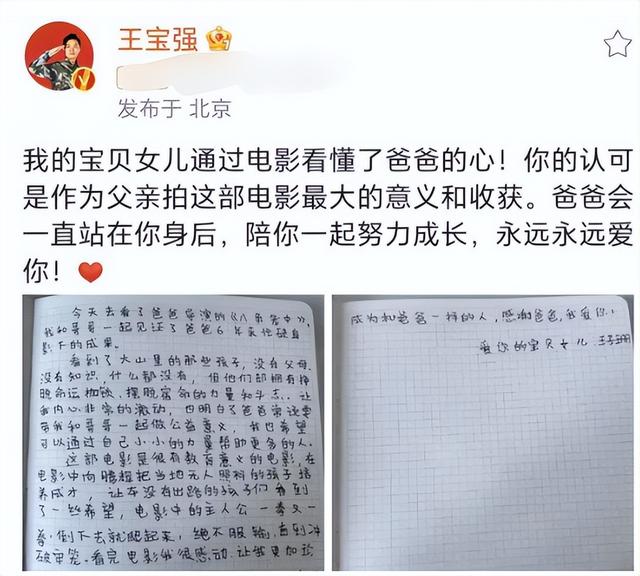 王宝强
发布于 北京
我的宝贝女儿通过电影看懂了爸爸的心！你的认可
是作为父亲拍这部电影最大的意义和收获。爸爸会
一直站在你身后，陪你一起努力成长，永远永远爱
你！❤️
今天去看了爸爸导演的《八角笼中》,
我和哥哥一起见证了爸爸6年来
影下的成果。
看到了大山里的那些孩子,没有父母,
没有知识,什么都没有,但他们却拥有挣
脱命运枷锁、摆脱宿命的力量和斗志,让
我内心非常的激动,也明白了爸爸常说要
带我和哥哥一起做公益意义,我也希望
可以通过自己小小的力量帮助更多的人.
这部电影是很有教育意义的电影,在
电影中向腾辉把当地无人照料的孩子培
养成才,让本没有出路的孩子们看到
了一丝希望,电影中的主人公一拳又一
拳,倒下去就爬起来,绝不服输,直到冲
破牢笼.看完电影我很感动,让我更加珍
成为和爸爸一样的人,感谢爸爸,我爱你!
爱你的宝贝女儿 王子珊